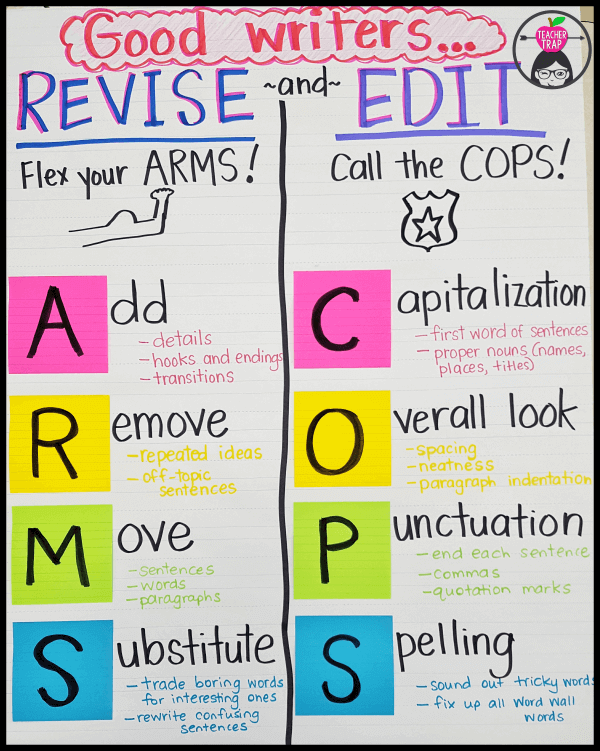 Good writers...
TEACHER
TRAP
REVISE ~and~ EDIT
Flex your ARMS!
Add
- details
- hooks and endings
- transitions
Remove
- repeated ideas
- off-topic
sentences
Move
- sentences
- words
- paragraphs
Substitute
- trade boring words
for interesting ones
- rewrite confusing
sentences
Call the COPS!
Capitalization
- first word of sentences
- proper nouns (names,
places, titles)
Overall look
- spacing
- neatness
- paragraph indentation
Punctuation
- end each sentence
- commas
- quotation marks
Spelling
- sound out tricky words
- fix up all word wall
words